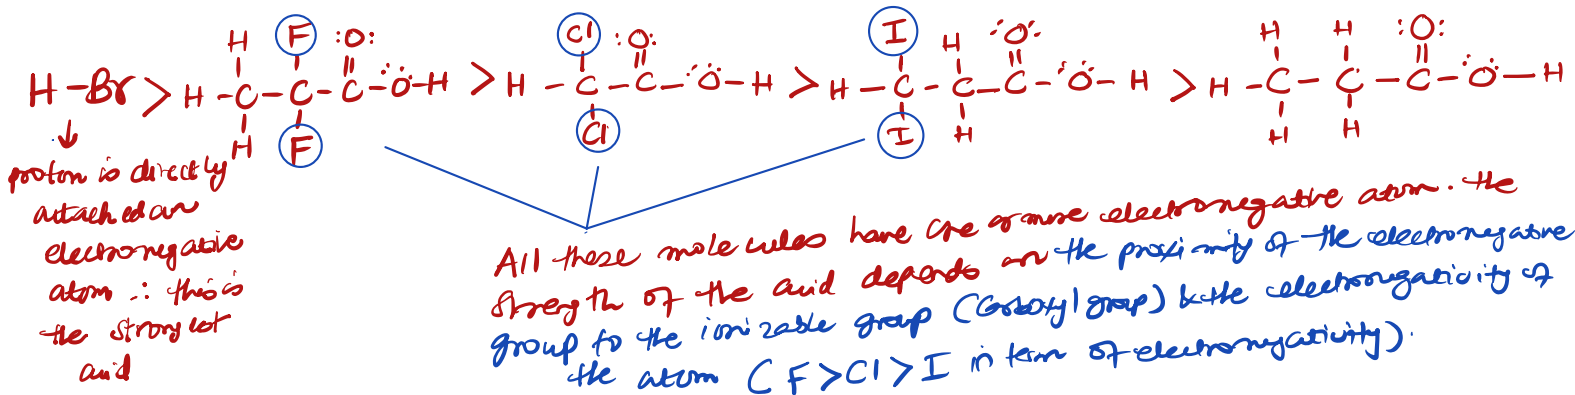 H H F :O: Cl :O: I H :O: H H :O:
H-Br > H-C-C-C-O-H > H-C-C-O-H > H-C-C-C-O-H > H-C-C-C-O-H
H F Cl I H H H
proton is directly
attached an
electronegative
atom ∴ this is
the strongest
acid
All these molecules have one or more electronegative atom. the
strength of the acid depends on the proximity of the electronegative
group to the ionizable group (Carboxyl group) & the electronegativity of
the atom (F>Cl>I in term of electronegativity).